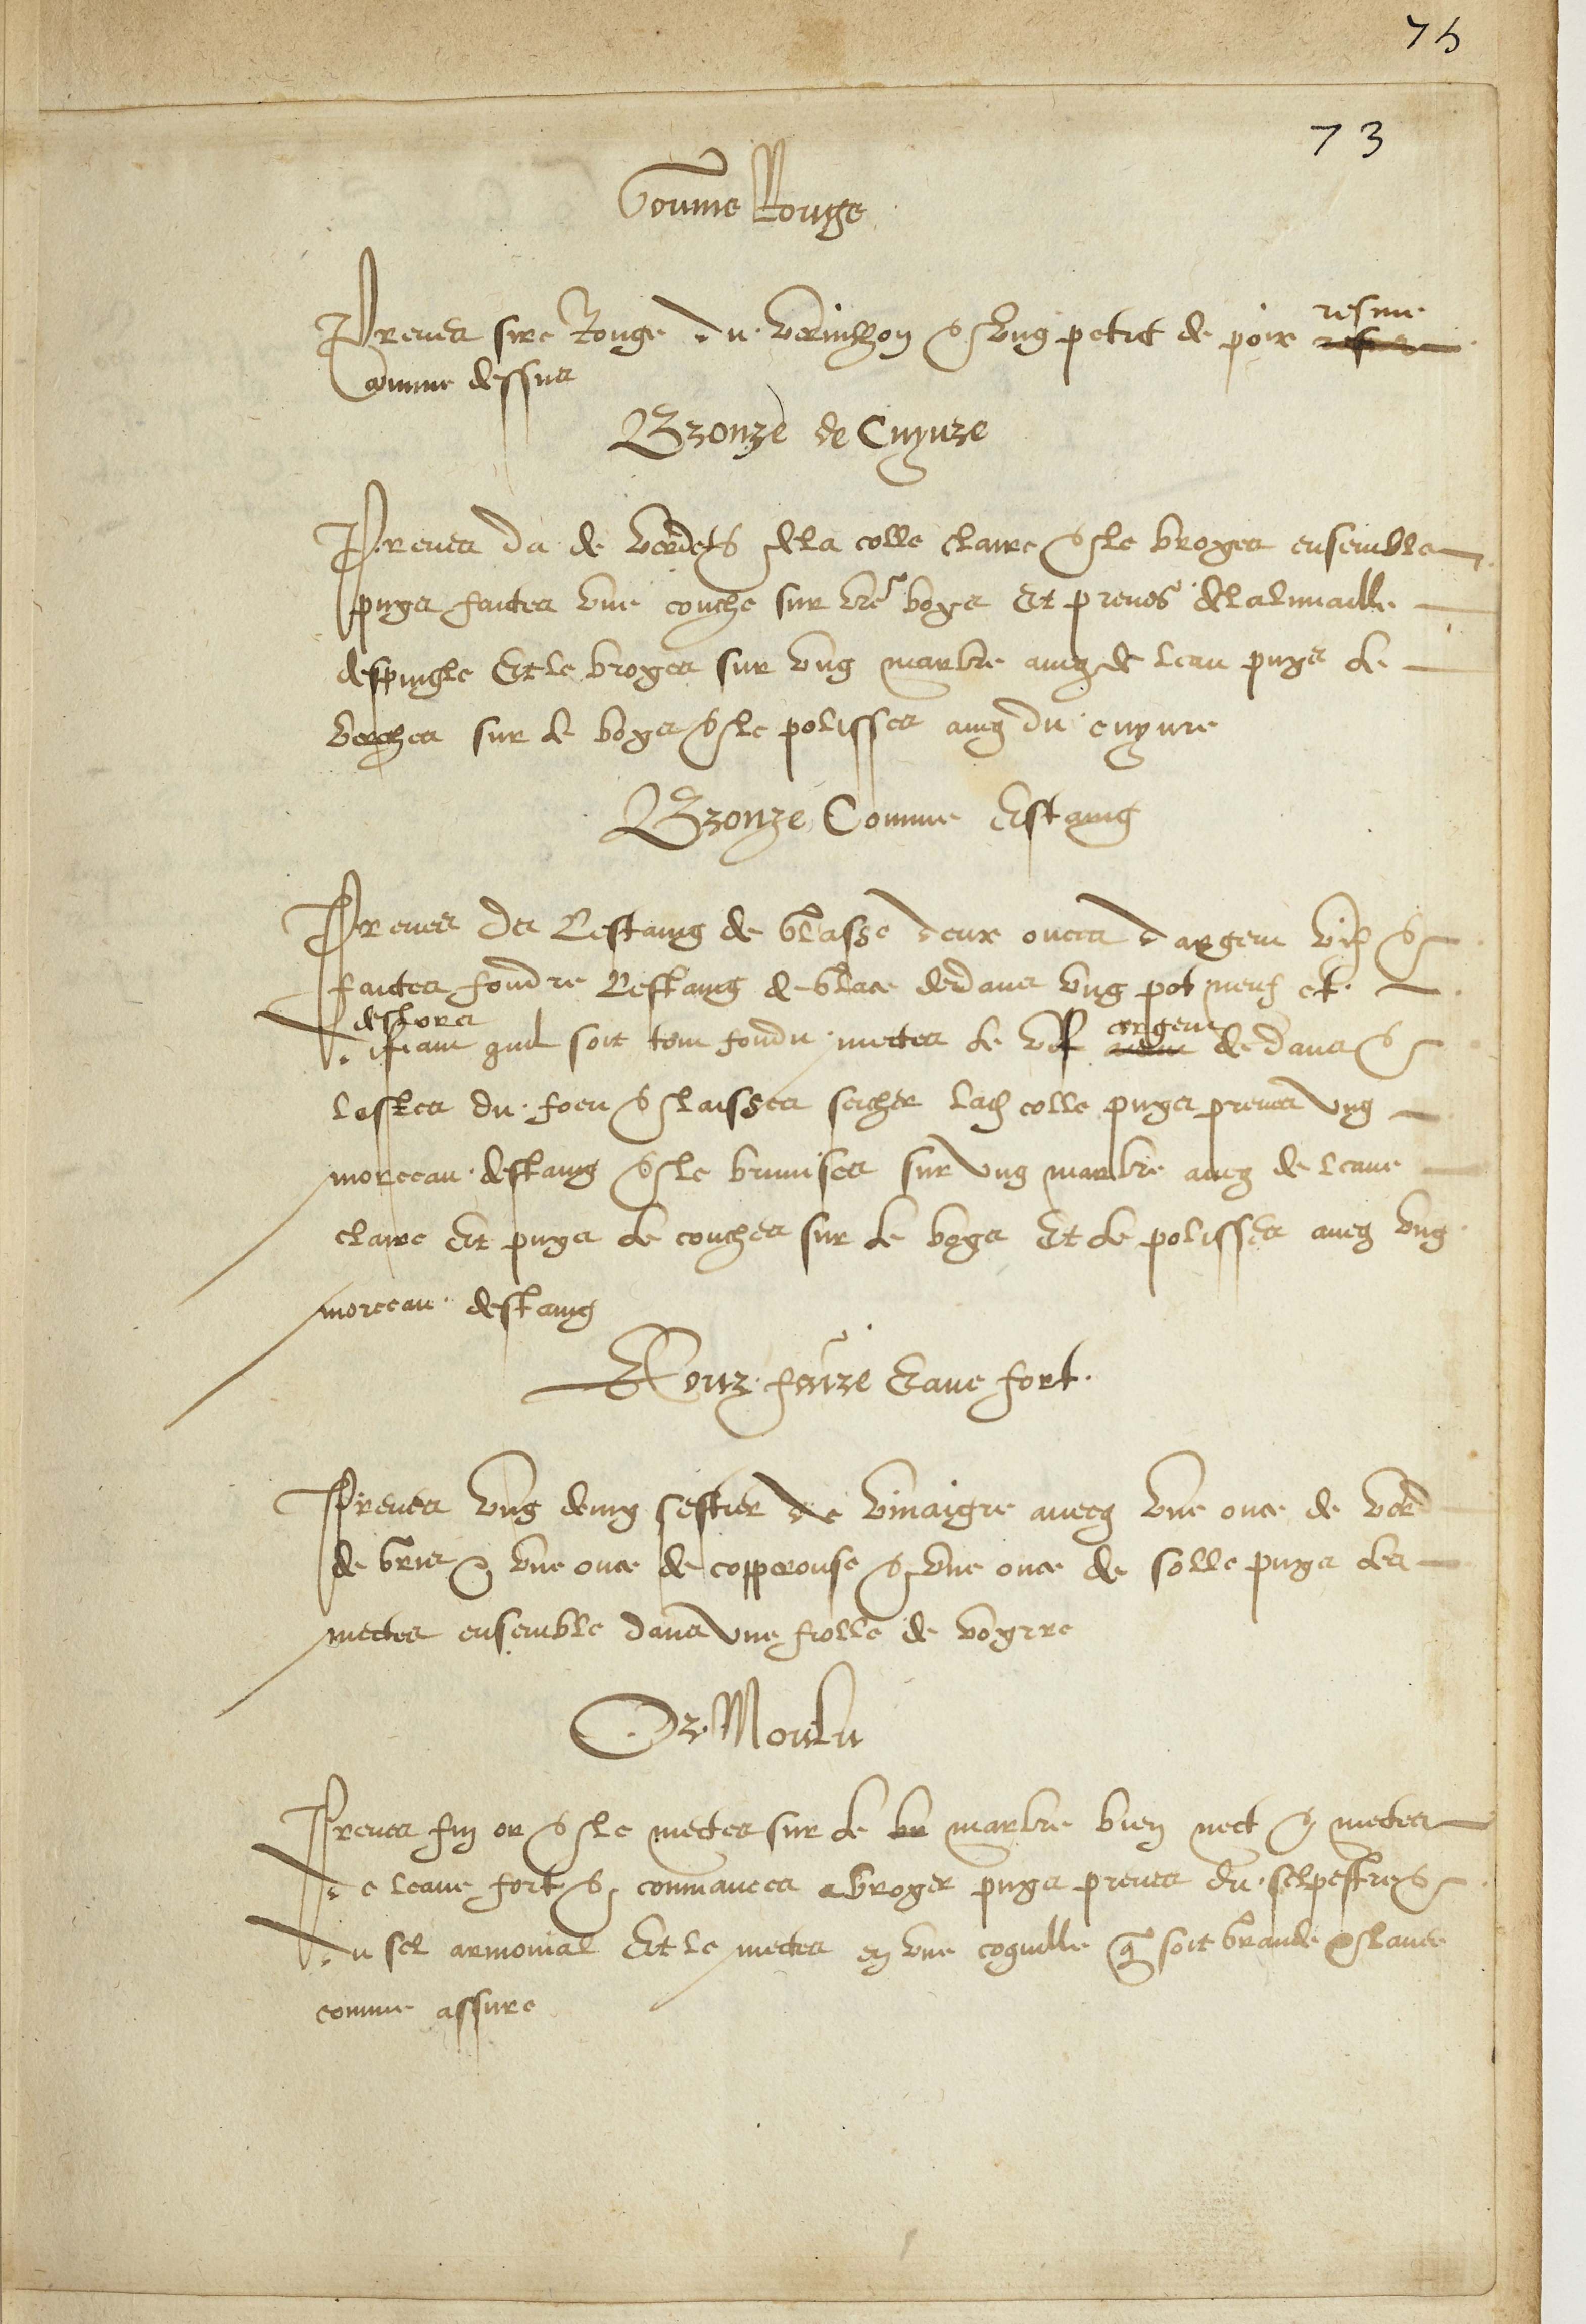 75
73
Gomme Rouge
Prenes sire Rouge du vermilhon & ung petit de poix resine
Comme dessus
Bronze de Cuyure
Prenes de verdet & de la colle claire & le broyes ensemble
puys faites une couche sur vre boys Et prenes de la limaille
despingle Et le broyes sur ung marbre aueq de leau puys le
couches sur le boys & le polisses aueq du cuyure
Bronze Comme Estaing
Prenes de Lestaing de glasse deux onces dargent vif &
faites fondre Lestaing de glace dedans ung pot neuf et
deslors
quil soit tout fondu mettes le vif argent dedans &
lostes du foeu & laisses secher lad colle puys prenes ung
morceau destaing & le brunises sur ung marbre aueq de leaue
claire Et puys le couches sur le boys Et le polisses aueq ung
morceau destaing
Pour faire Eaue fort
Prenes ung demy sestier de vinaigre auecq une once de verd
de gris & une once de copperouse & une once de solle puys les
mettes ensemble dans une fiolle de voyrre
Or Moulu
Prenes fin or & le mettes sur le marbre bien nect & mettes
de leaue fort & commances a broyer puys prenes du selpestre &
du sel armonial Et le mettes en une coquille q soit grande & laues
comme assure